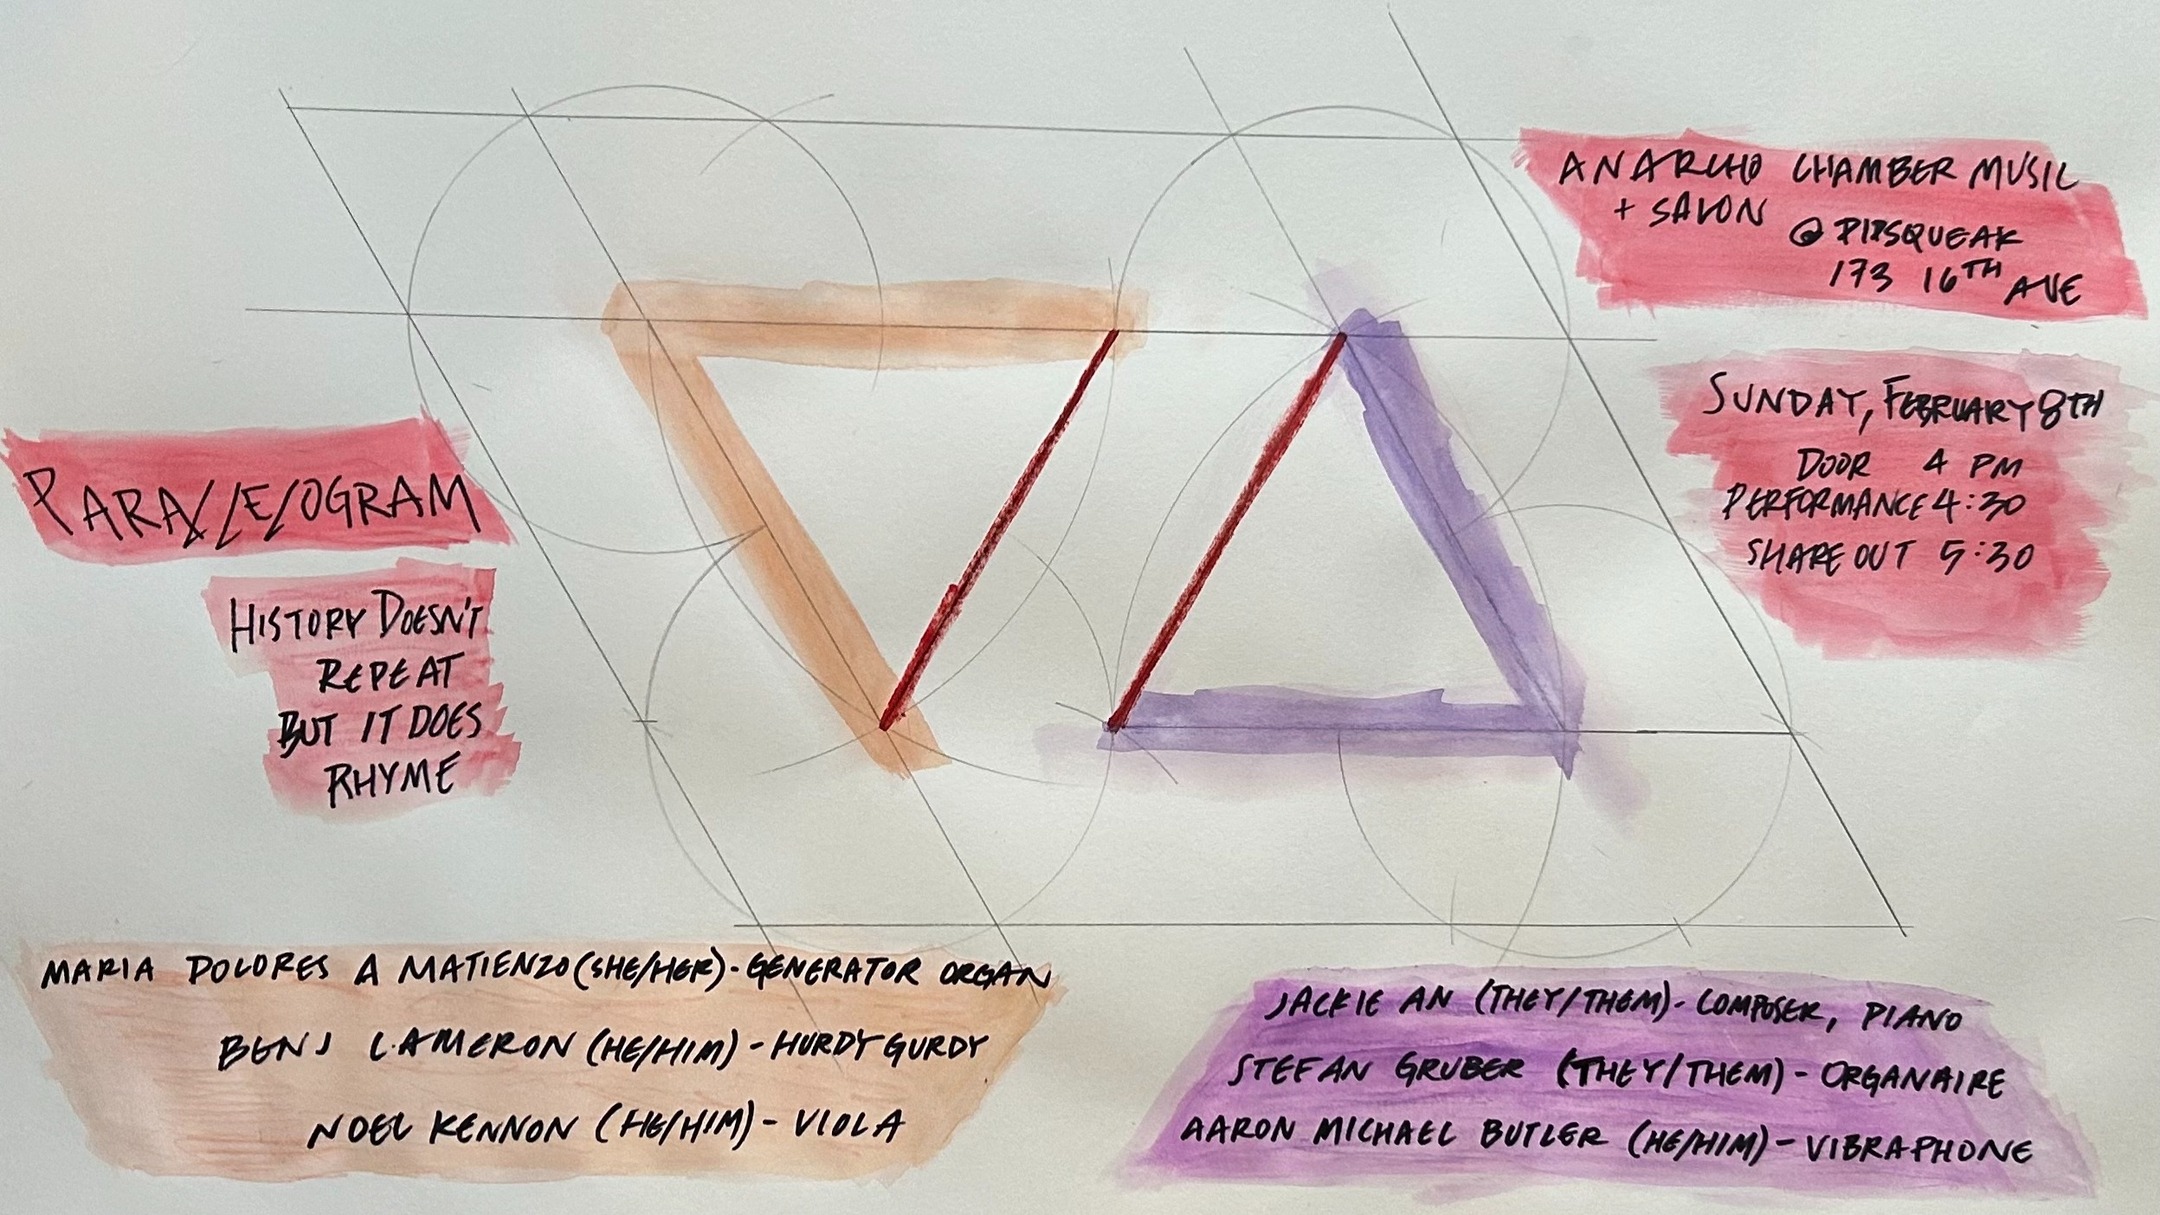 ANARCHO CHAMBER MUSIC
+ SALON @ PIPSQUEAK
173 16TH AVE
SUNDAY, FEBRUARY 8TH
DOOR 4 PM
PERFORMANCE 4:30
SHARE OUT 5:30
PARALLELOGRAM
HISTORY DOESN'T
REPEAT
BUT IT DOES
RHYME
MARIA DOLORES A MATIENZO (SHE/HER) - GENERATOR ORGAN
BENJ CAMERON (HE/HIM) - HURDY GURDY
NOEL KENNON (HE/HIM) - VIOLA
JACKIE AN (THEY/THEM) - COMPOSER, PIANO
STEFAN GRUBER (THEY/THEM) - ORGANAIRE
AARON MICHAEL BUTLER (HE/HIM) - VIBRAPHONE